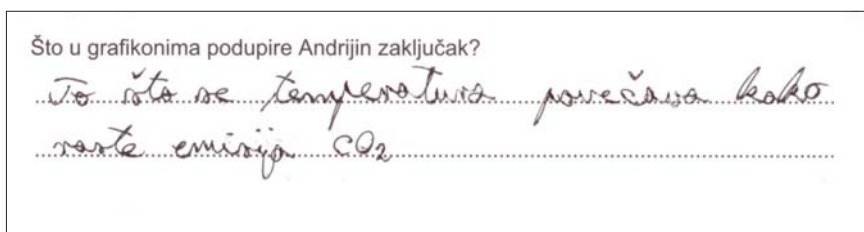 Što u grafikonima podupire Andrijin zaključak?
To što se temperatura povečava kako
raste emisija CO2